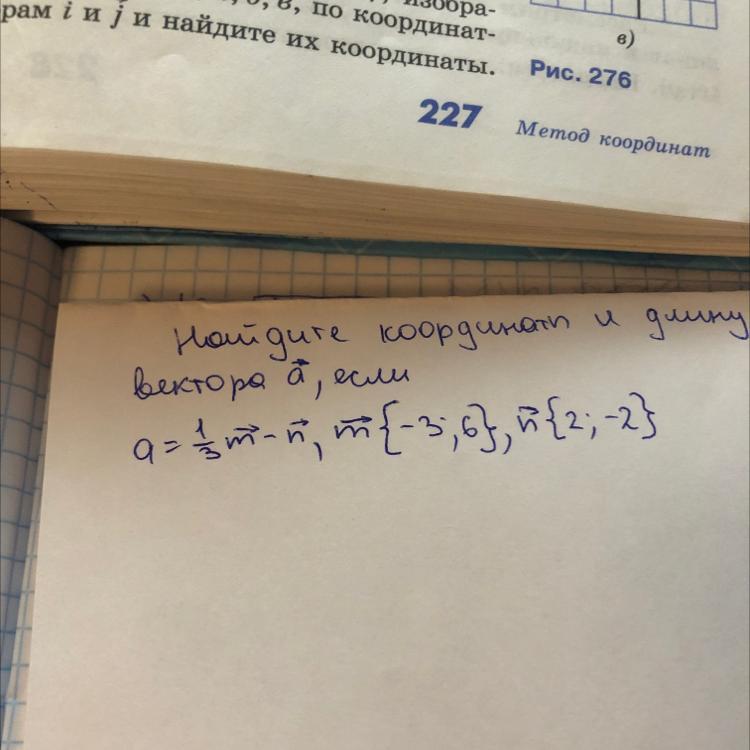 в, по координат-
в)
рам i и j и найдите их координаты.
Рис. 276
227
Метод координат
Найдите координаты и длину
вектора a⃗, если
a = 1/3 m⃗ - n⃗, m⃗ {-3; 6}, n⃗ {2; -2}